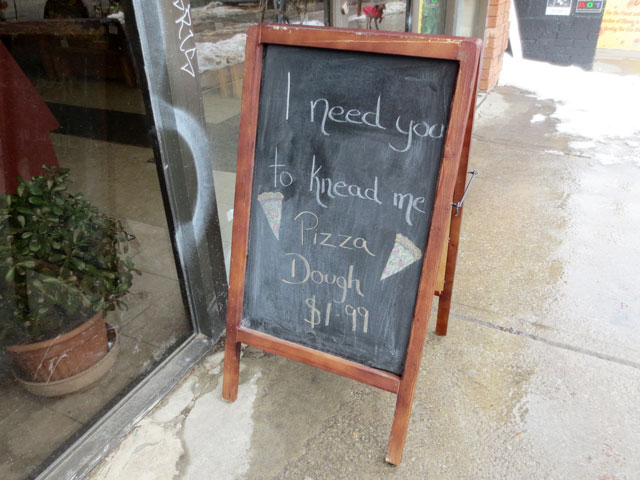 I need you
to knead me
Pizza
Dough
$1.99